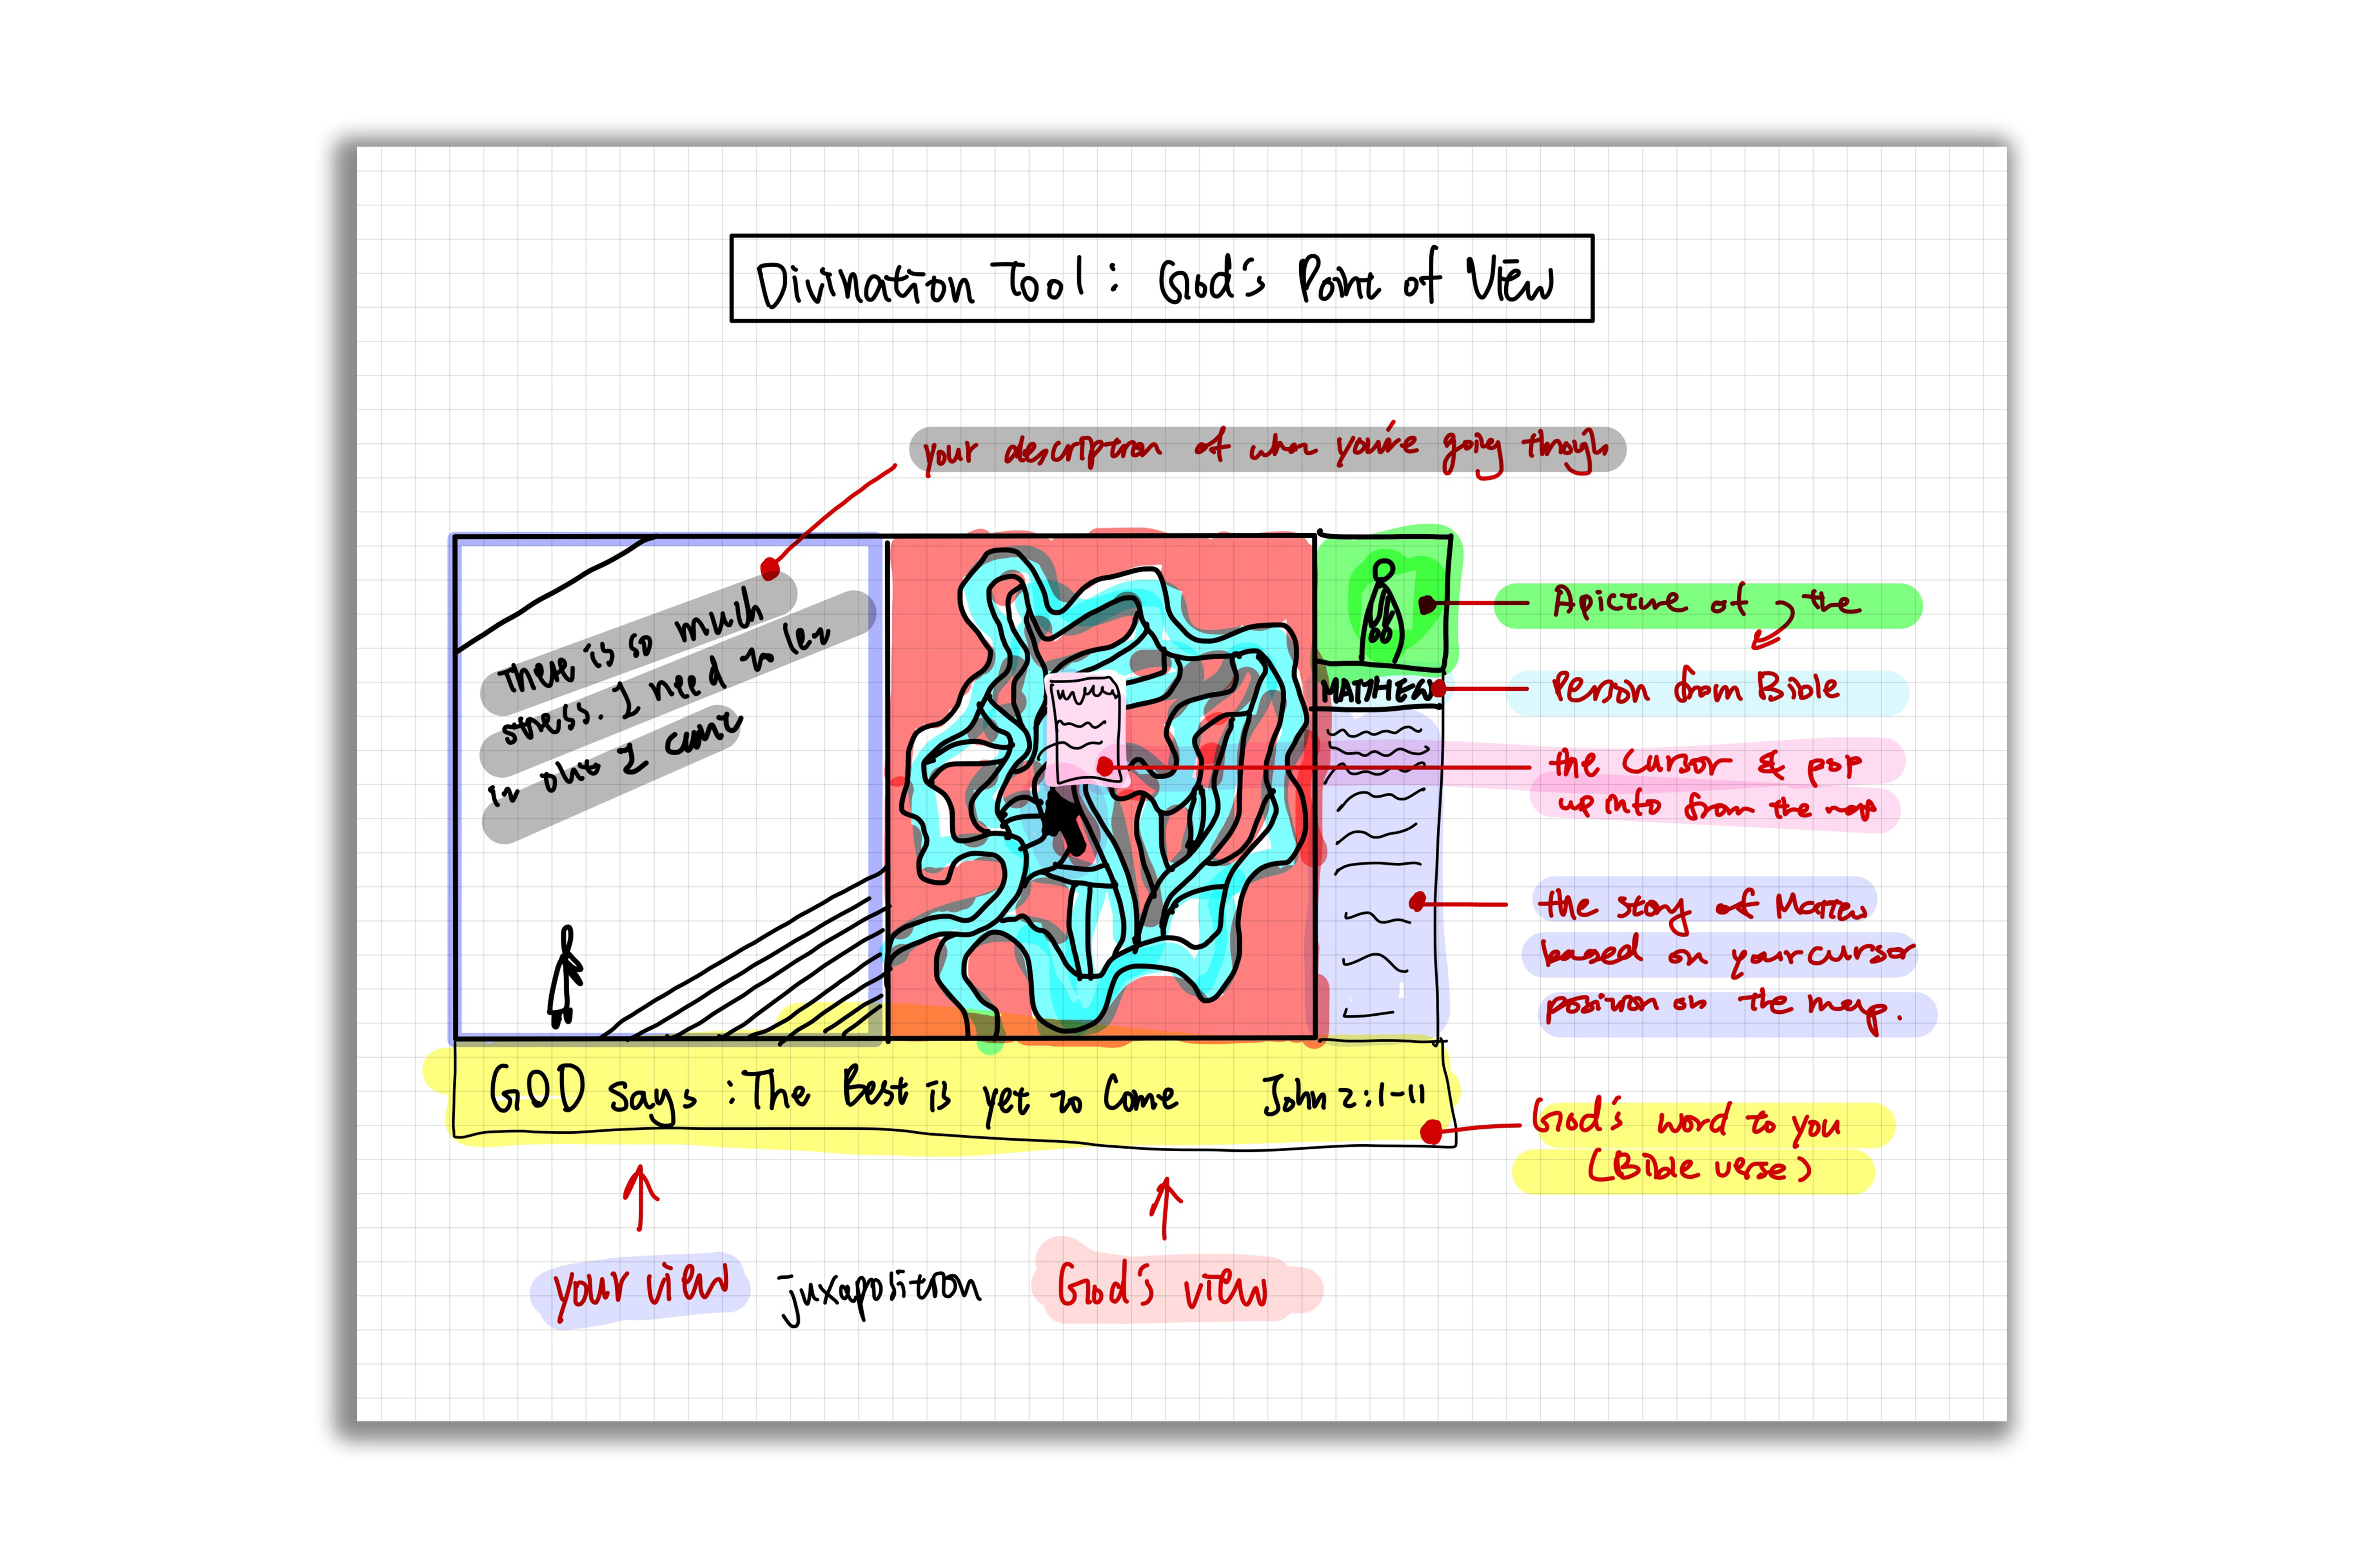 Divination Tool: God's Point of View
your description of what you're going through
There is so much
stress. I need to let
it out I can't
MATTHEW
A picture of the
Person from Bible
the cursor & pop
up info from the map
the story of Matthew
based on your cursor
position on the map.
GOD says: The Best is yet to Come John 2:1-11
God's word to you
(Bible verse)
your view juxaposition God's view